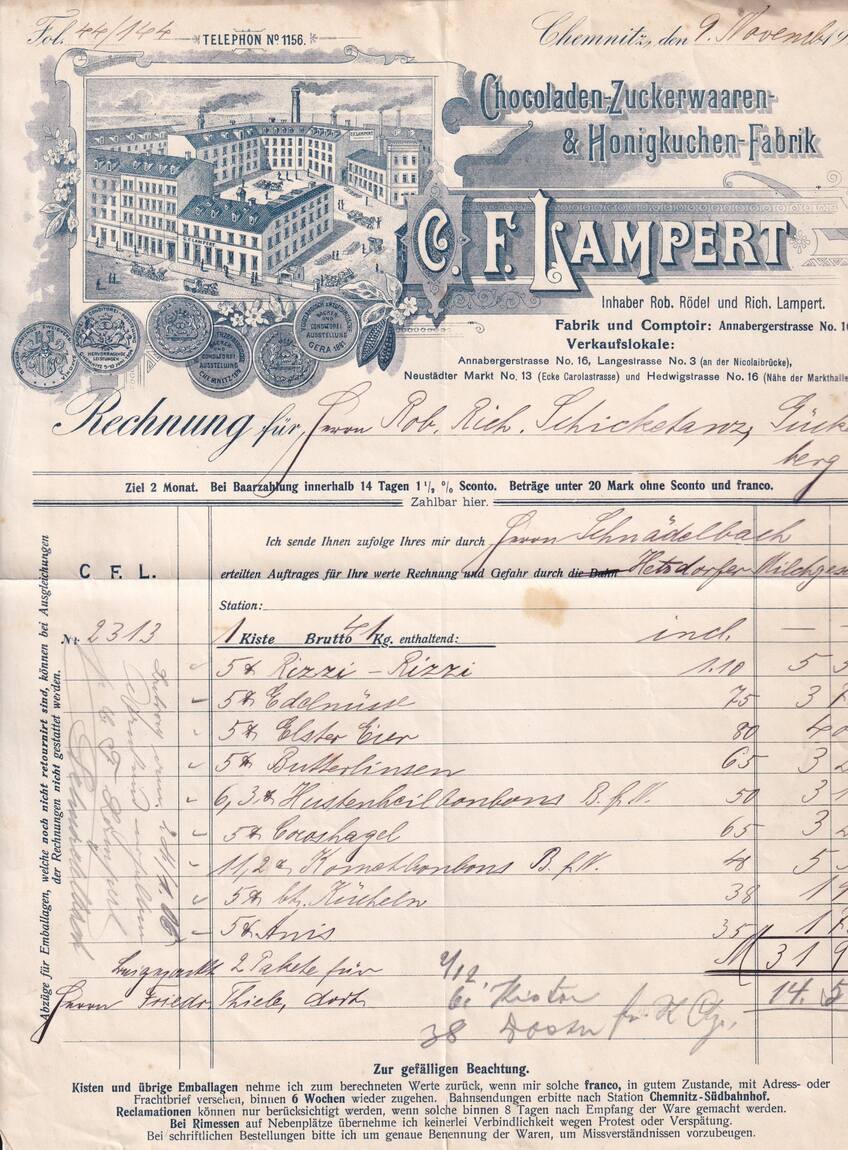 Fol. 44/144
TELEPHON No 1156.
Chemnitz, den 9. Novemb 19
Chocoladen-Zuckerwaaren-
& Honigkuchen-Fabrik
C. F. LAMPERT
C. F. LAMPERT
C.F. LAMPERT
Inhaber Rob. Rödel und Rich. Lampert.
Fabrik und Comptoir: Annabergerstrasse No. 16
Verkaufslokale:
Annabergerstrasse No. 16, Langestrasse No. 3 (an der Nicolaibrücke),
Neustädter Markt No. 13 (Ecke Carolastrasse) und Hedwigstrasse No. 16 (Nähe der Markthalle
HERVORRAGENDE
LEISTUNGEN
BÄCKER-
UND
CONDITOREI
AUSSTELLUNG
CHEMNITZ
BÄCKER-
UND
CONDITOREI
AUSSTELLUNG
GERA 1897
Rechnung für Herrn Rob. Rich. Schicketanz, Gücke
berg
Ziel 2 Monat. Bei Baarzahlung innerhalb 14 Tagen 1 1/2 % Sconto. Beträge unter 20 Mark ohne Sconto und franco.
Zahlbar hier.
Ich sende Ihnen zufolge Ihres mir durch Herrn Schnädelbach
C F. L.
erteilten Auftrages für Ihre werte Rechnung und Gefahr durch die Bahn Hetzdorfer Milchges
Station:
Nr. 2313
1 Kiste Brutto 41 Kg. enthaltend: incl. — —
5 Rizzi – Rizzi 1.10 5 5
5 Edelnüsse 75 3 7
5 Elster Eier 80 40
5 Butterlinsen 65 3 2
6,3 Hustenheilbonbons B. f. W. 50 3 1
5 Cocoshagel 65 3 2
11,2 Kometbonbons B. f. W. 48 5
5 Kücheln 38 19
5 Anis 35 17
M 319
2 Pakete für 14.5
Herrn Friedr. Thiele, dort
38
Abzüge für Emballagen, welche noch nicht retournirt sind, können bei Ausgleichungen
der Rechnungen nicht gestattet werden.
Zur gefälligen Beachtung.
Kisten und übrige Emballagen nehme ich zum berechneten Werte zurück, wenn mir solche franco, in gutem Zustande, mit Adress- oder
Frachtbrief versehen, binnen 6 Wochen wieder zugehen. Bahnsendungen erbitte nach Station Chemnitz-Südbahnhof.
Reclamationen können nur berücksichtigt werden, wenn solche binnen 8 Tagen nach Empfang der Ware gemacht werden.
Bei Rimessen auf Nebenplätze übernehme ich keinerlei Verbindlichkeit wegen Protest oder Verspätung.
Bei schriftlichen Bestellungen bitte ich um genaue Benennung der Waren, um Missverständnissen vorzubeugen.